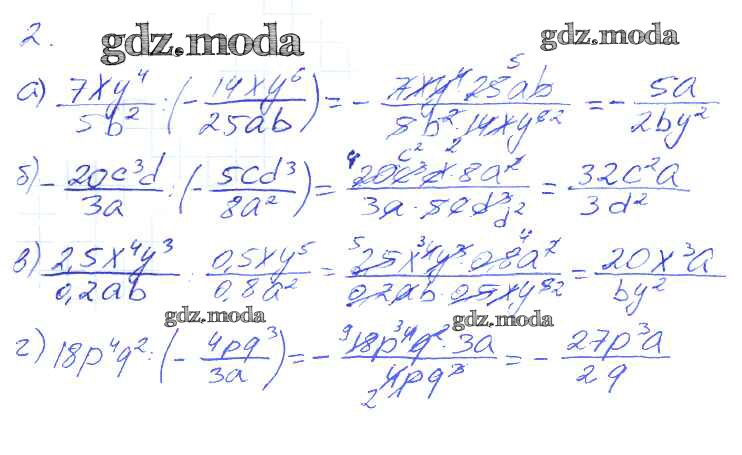 2.
gdz.moda
gdz.moda
а) 7xy⁴/5b² : (−14xy⁶/25ab) = −7xy⁴·25ab/5b²·14xy⁶ = −5a/2by²
б) −20c³d/3a : (−5cd³/8a²) = 20c³d·8a²/3a·5cd³ = 32c²a/3d²
в) 2,5x⁴y³/0,2ab : 0,5xy⁵/0,8a² = 2,5x⁴y³·0,8a²/0,2ab·0,5xy⁵ = 20x³a/by²
gdz.moda
gdz.moda
г) 18p⁴q² : (−4pq³/3a) = −18p⁴q²·3a/4pq³ = −27p³a/2q